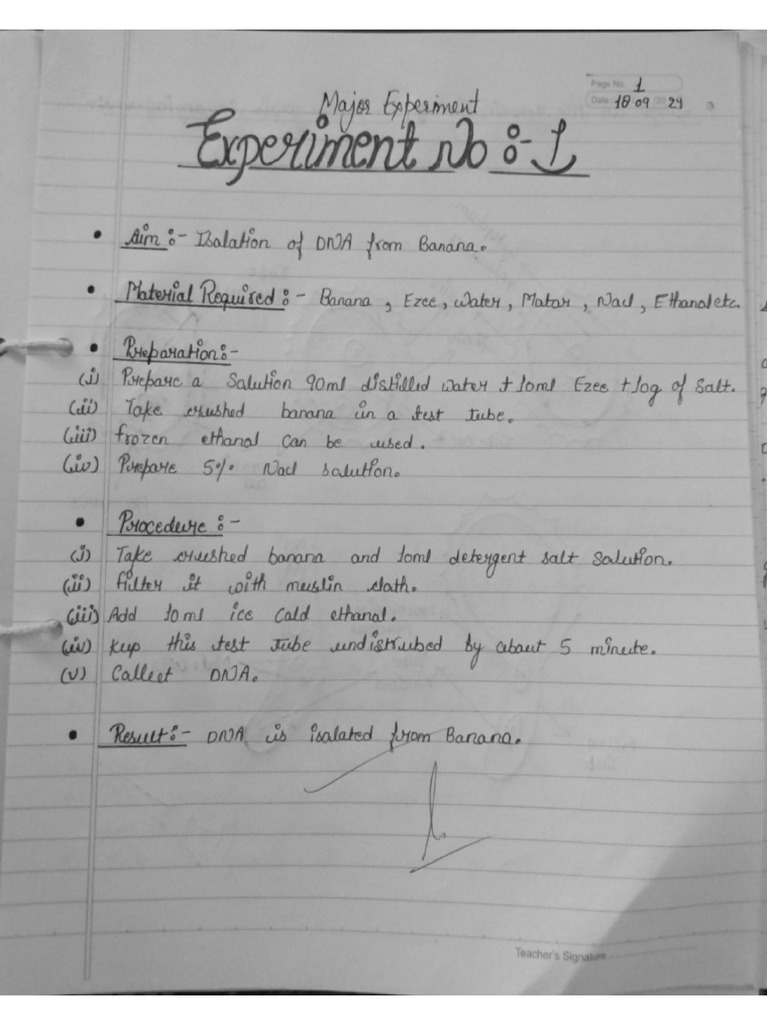 Page No. 1
Date 18 09 24
Major Experiment
Experiment No :- 1
• Aim :- Isolation of DNA from Banana.
• Material Required :- Banana, Ezee, Water, Matar, Nacl, Ethanol etc.
• Preparation :-
(i) Prepare a Solution 90ml distilled water + 10ml Ezee + 10g of Salt.
(ii) Take crushed banana in a test tube.
(iii) frozen ethanal can be used.
(iv) Prepare 5% Nacl solution.
• Procedure :-
(i) Take crushed banana and 10ml detergent salt solution.
(ii) filter it with muslin cloth.
(iii) Add 10ml ice cold ethanal.
(iv) Kup this test tube undistrubed by about 5 minute.
(v) Collect DNA.
• Result :- DNA is isolated from Banana.
Teacher's Signature